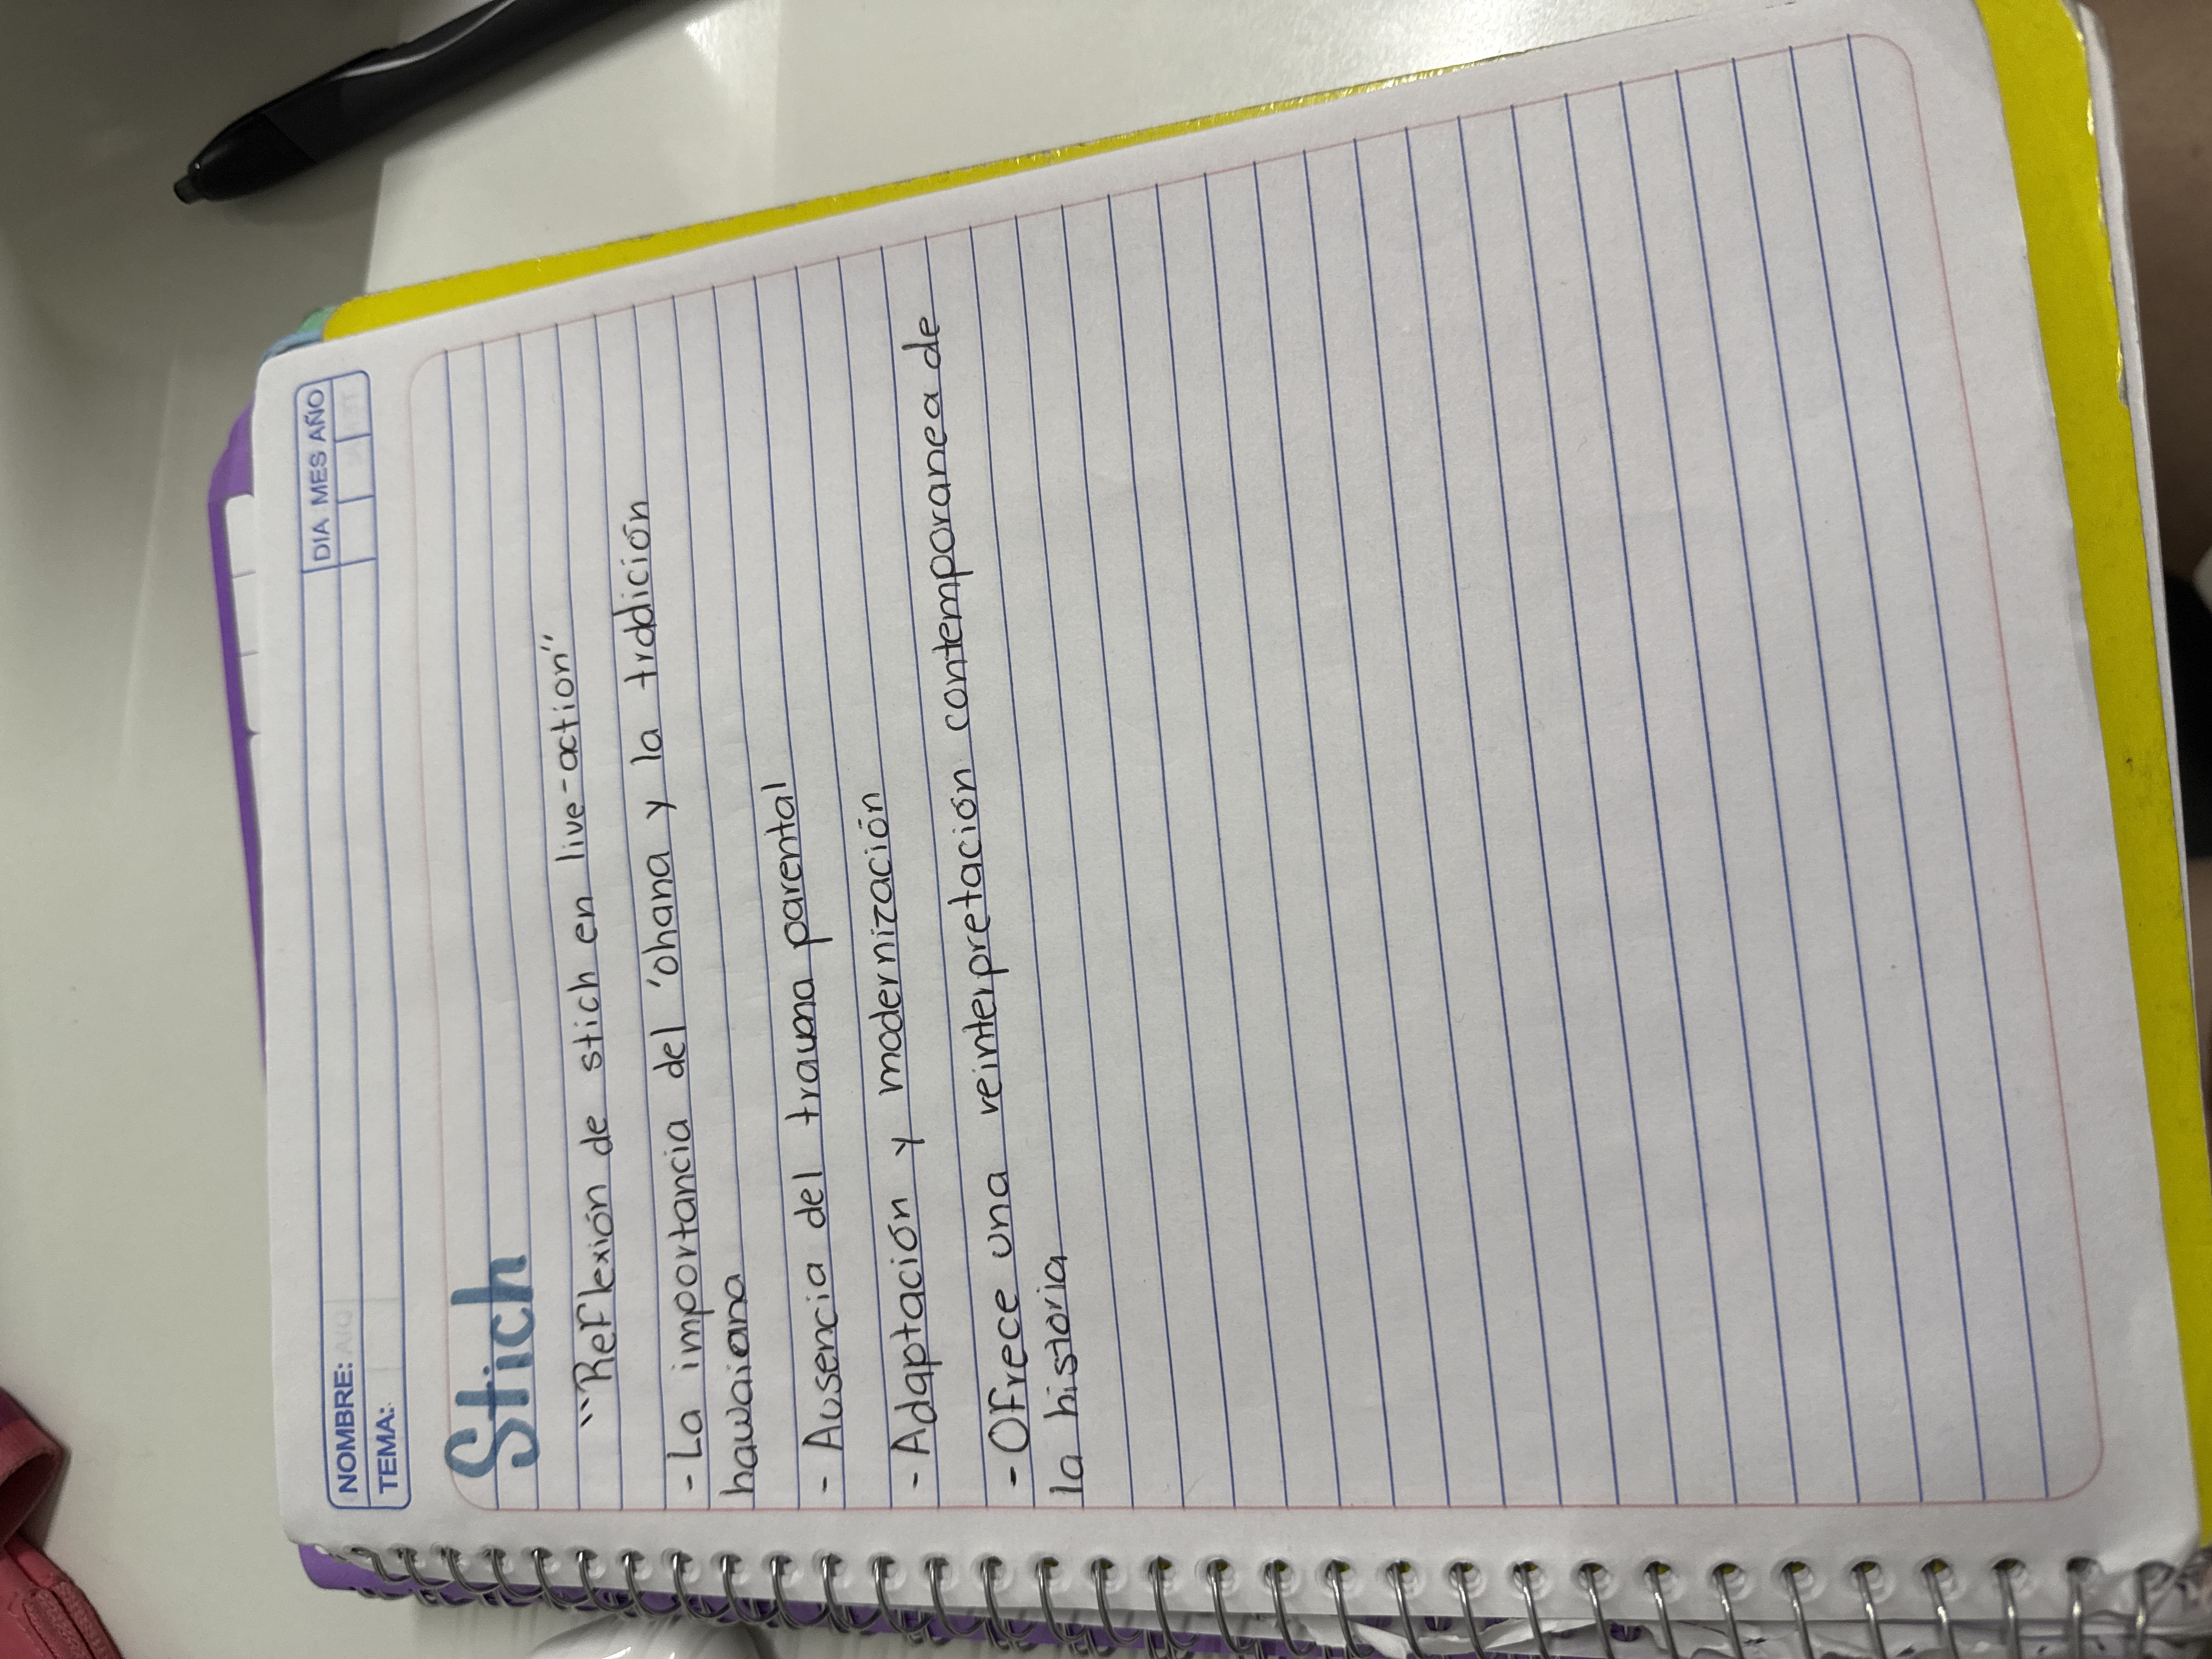 NOMBRE:
TEMA:
DIA MES AÑO
Stich
"Reflexión de stich en live-action"
- La importancia del 'ohana y la tradición
hawaiana
- Ausencia del trauma parental
- Adaptación y modernización
- Ofrece una reinterpretación contemporanea de
la historia